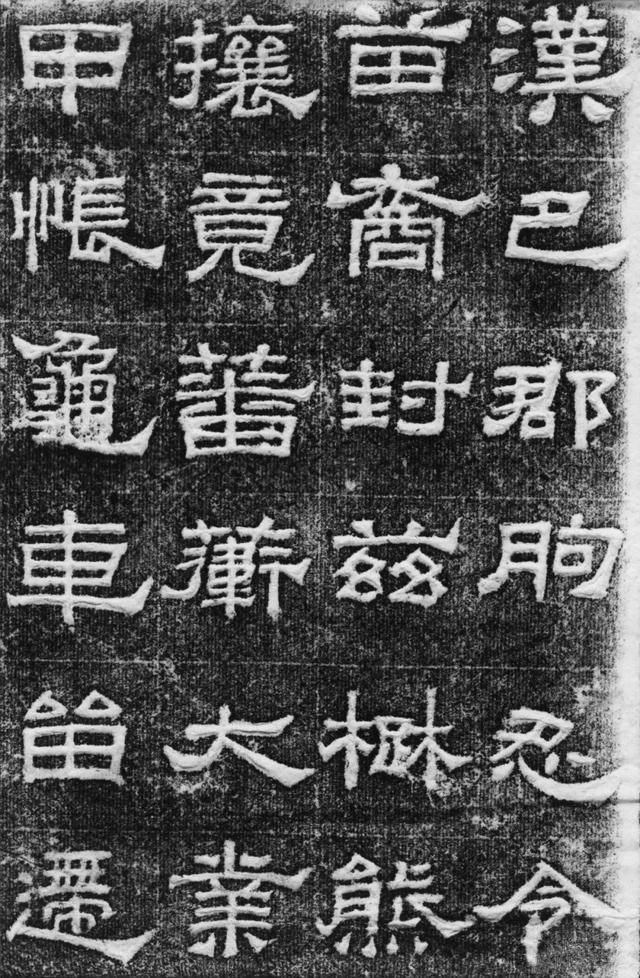 漢巴郡朐忍令
苗裔封茲楚熊
攘竟蕃衛大業
甲帳龜車留遰